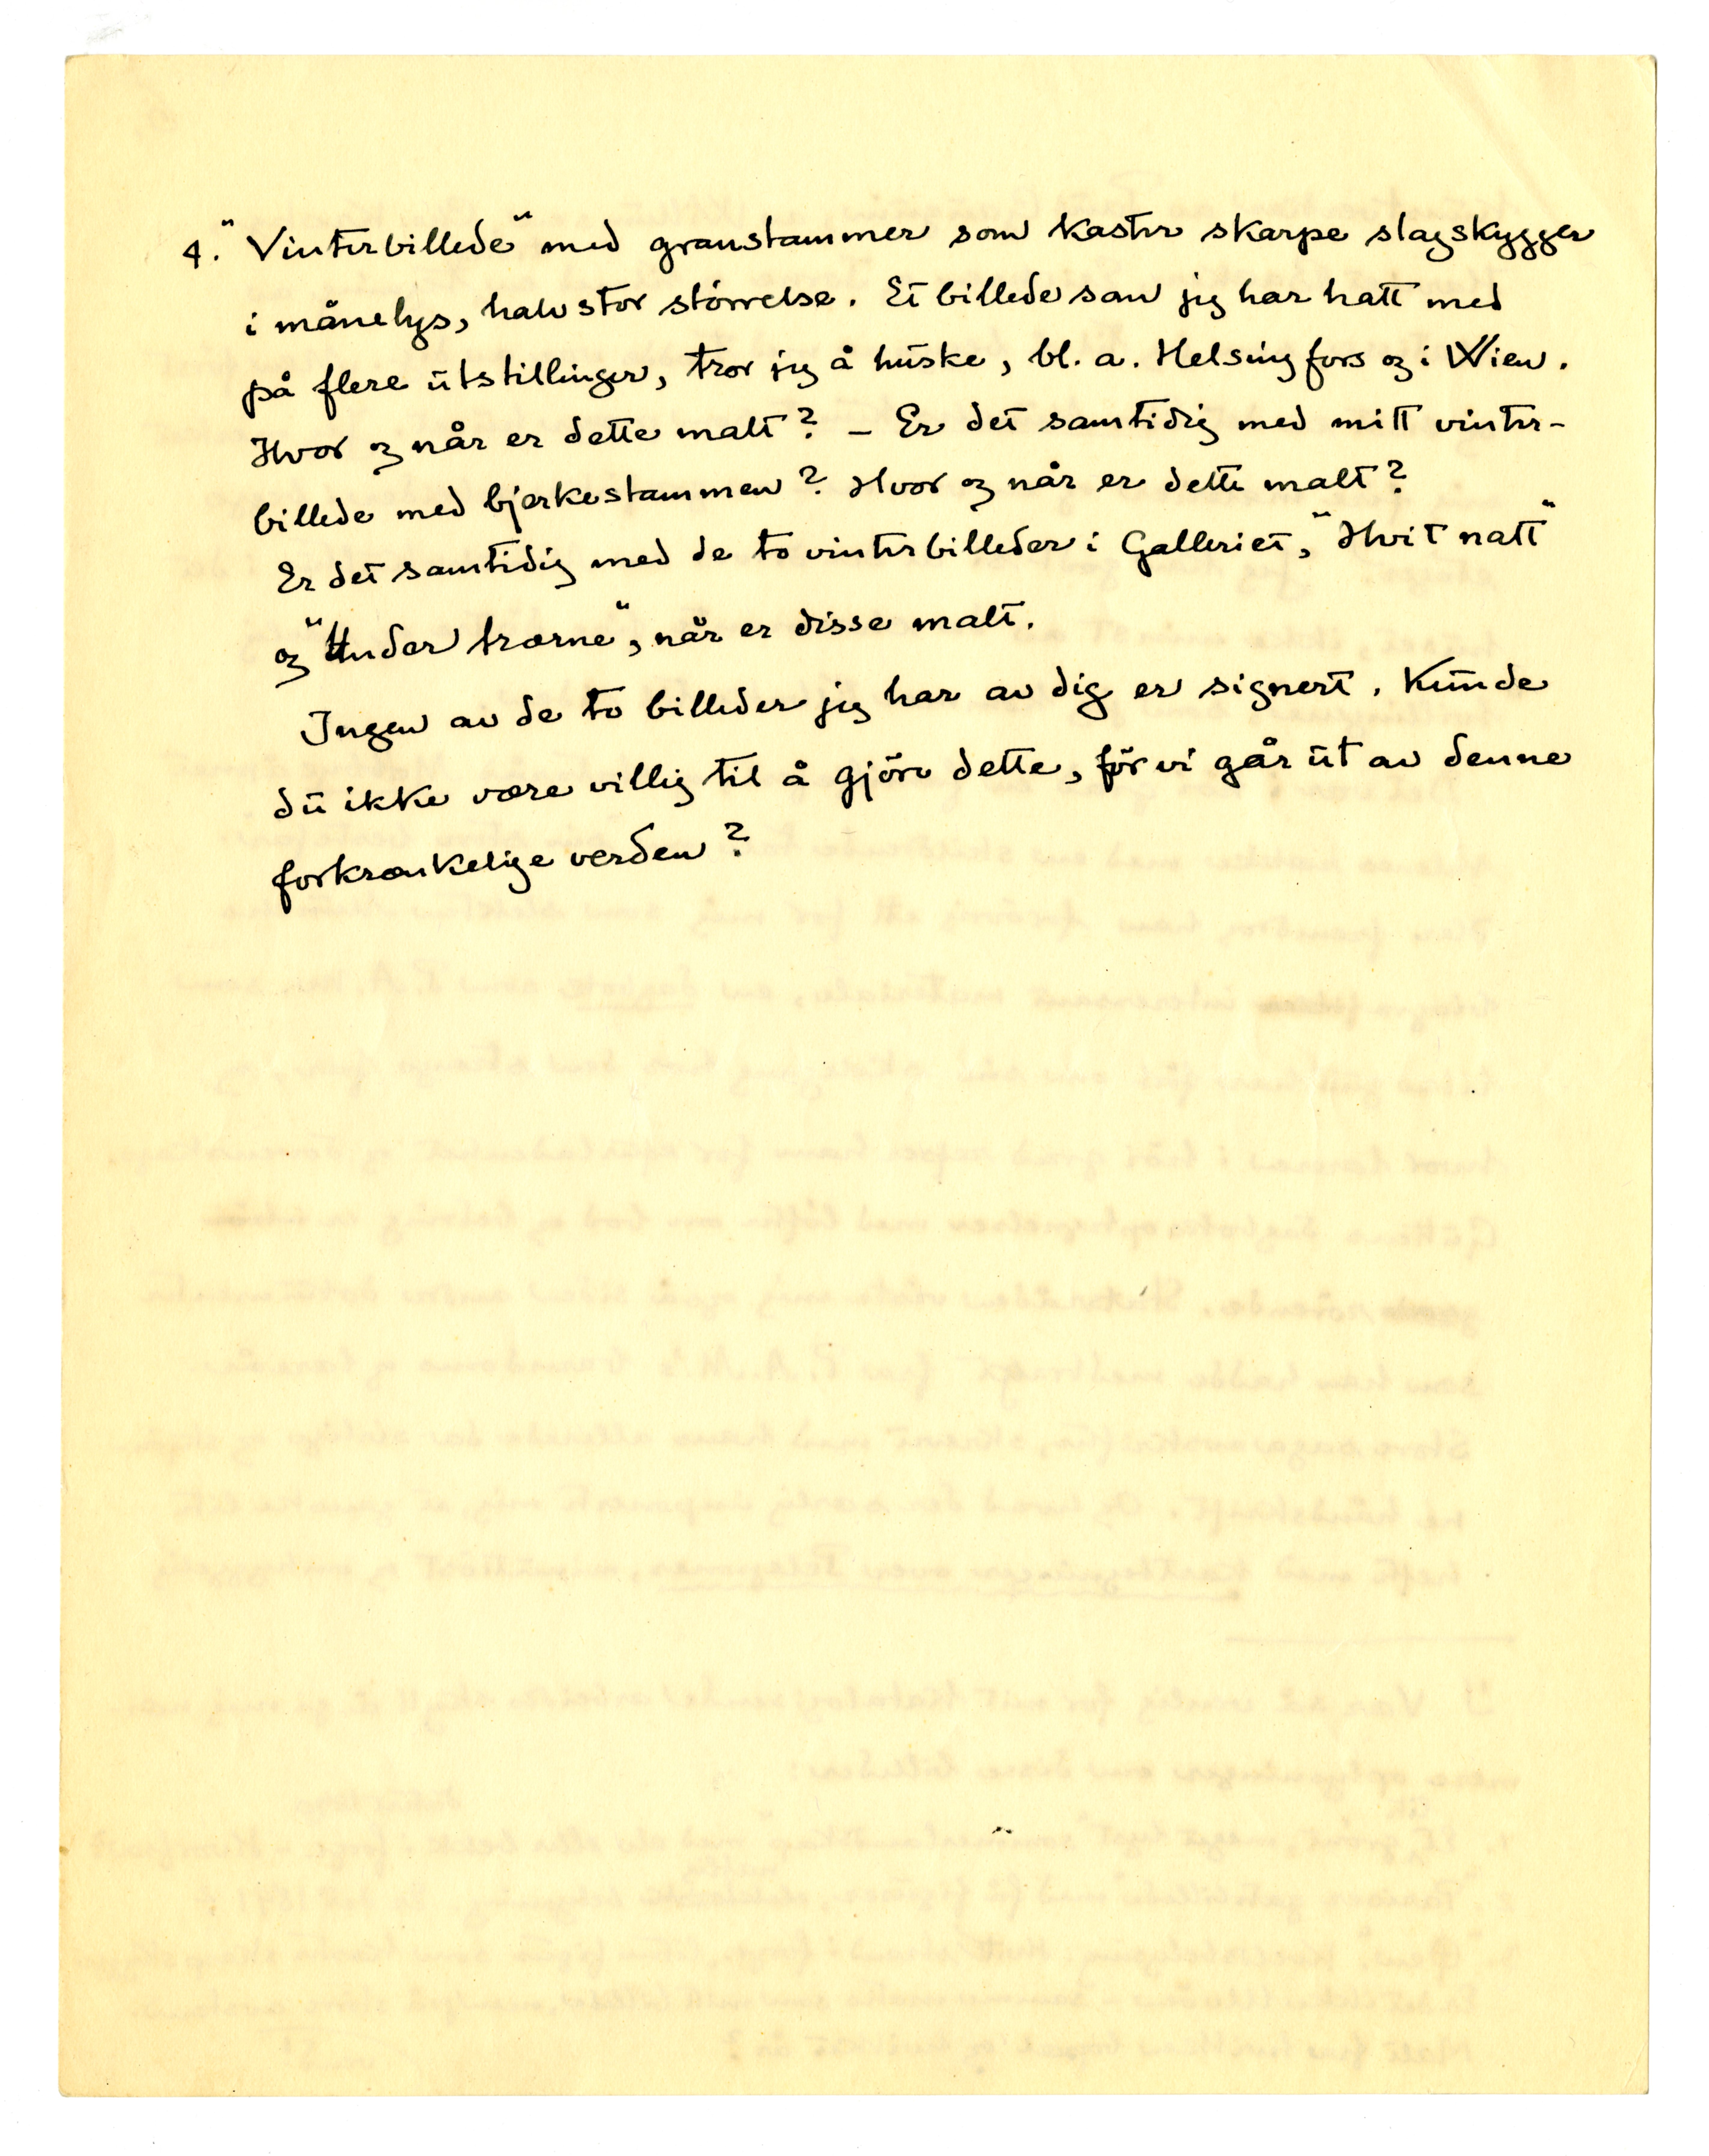 4. "Vinterbillede" med granstammer som kaster skarpe slagskygger
i månelys, halvstor störrelse. Et billede som jeg har hatt med
på flere utstillinger, tror jeg å huske, bl. a. Helsingfors og i Wien.
Hvor og når er dette malt? – Er det samtidig med mitt vinter-
billede med bjerkestammen? Hvor og når er dette malt?
Er det samtidig med de to vinterbilleder i Galleriet, "Hvit natt"
og "Under trærne", når er disse malt.
Ingen av de to billeder jeg har av dig er signert. Kunde
du ikke være villig til å gjöre dette, för vi går ut av denne
forkrænkelige verden?